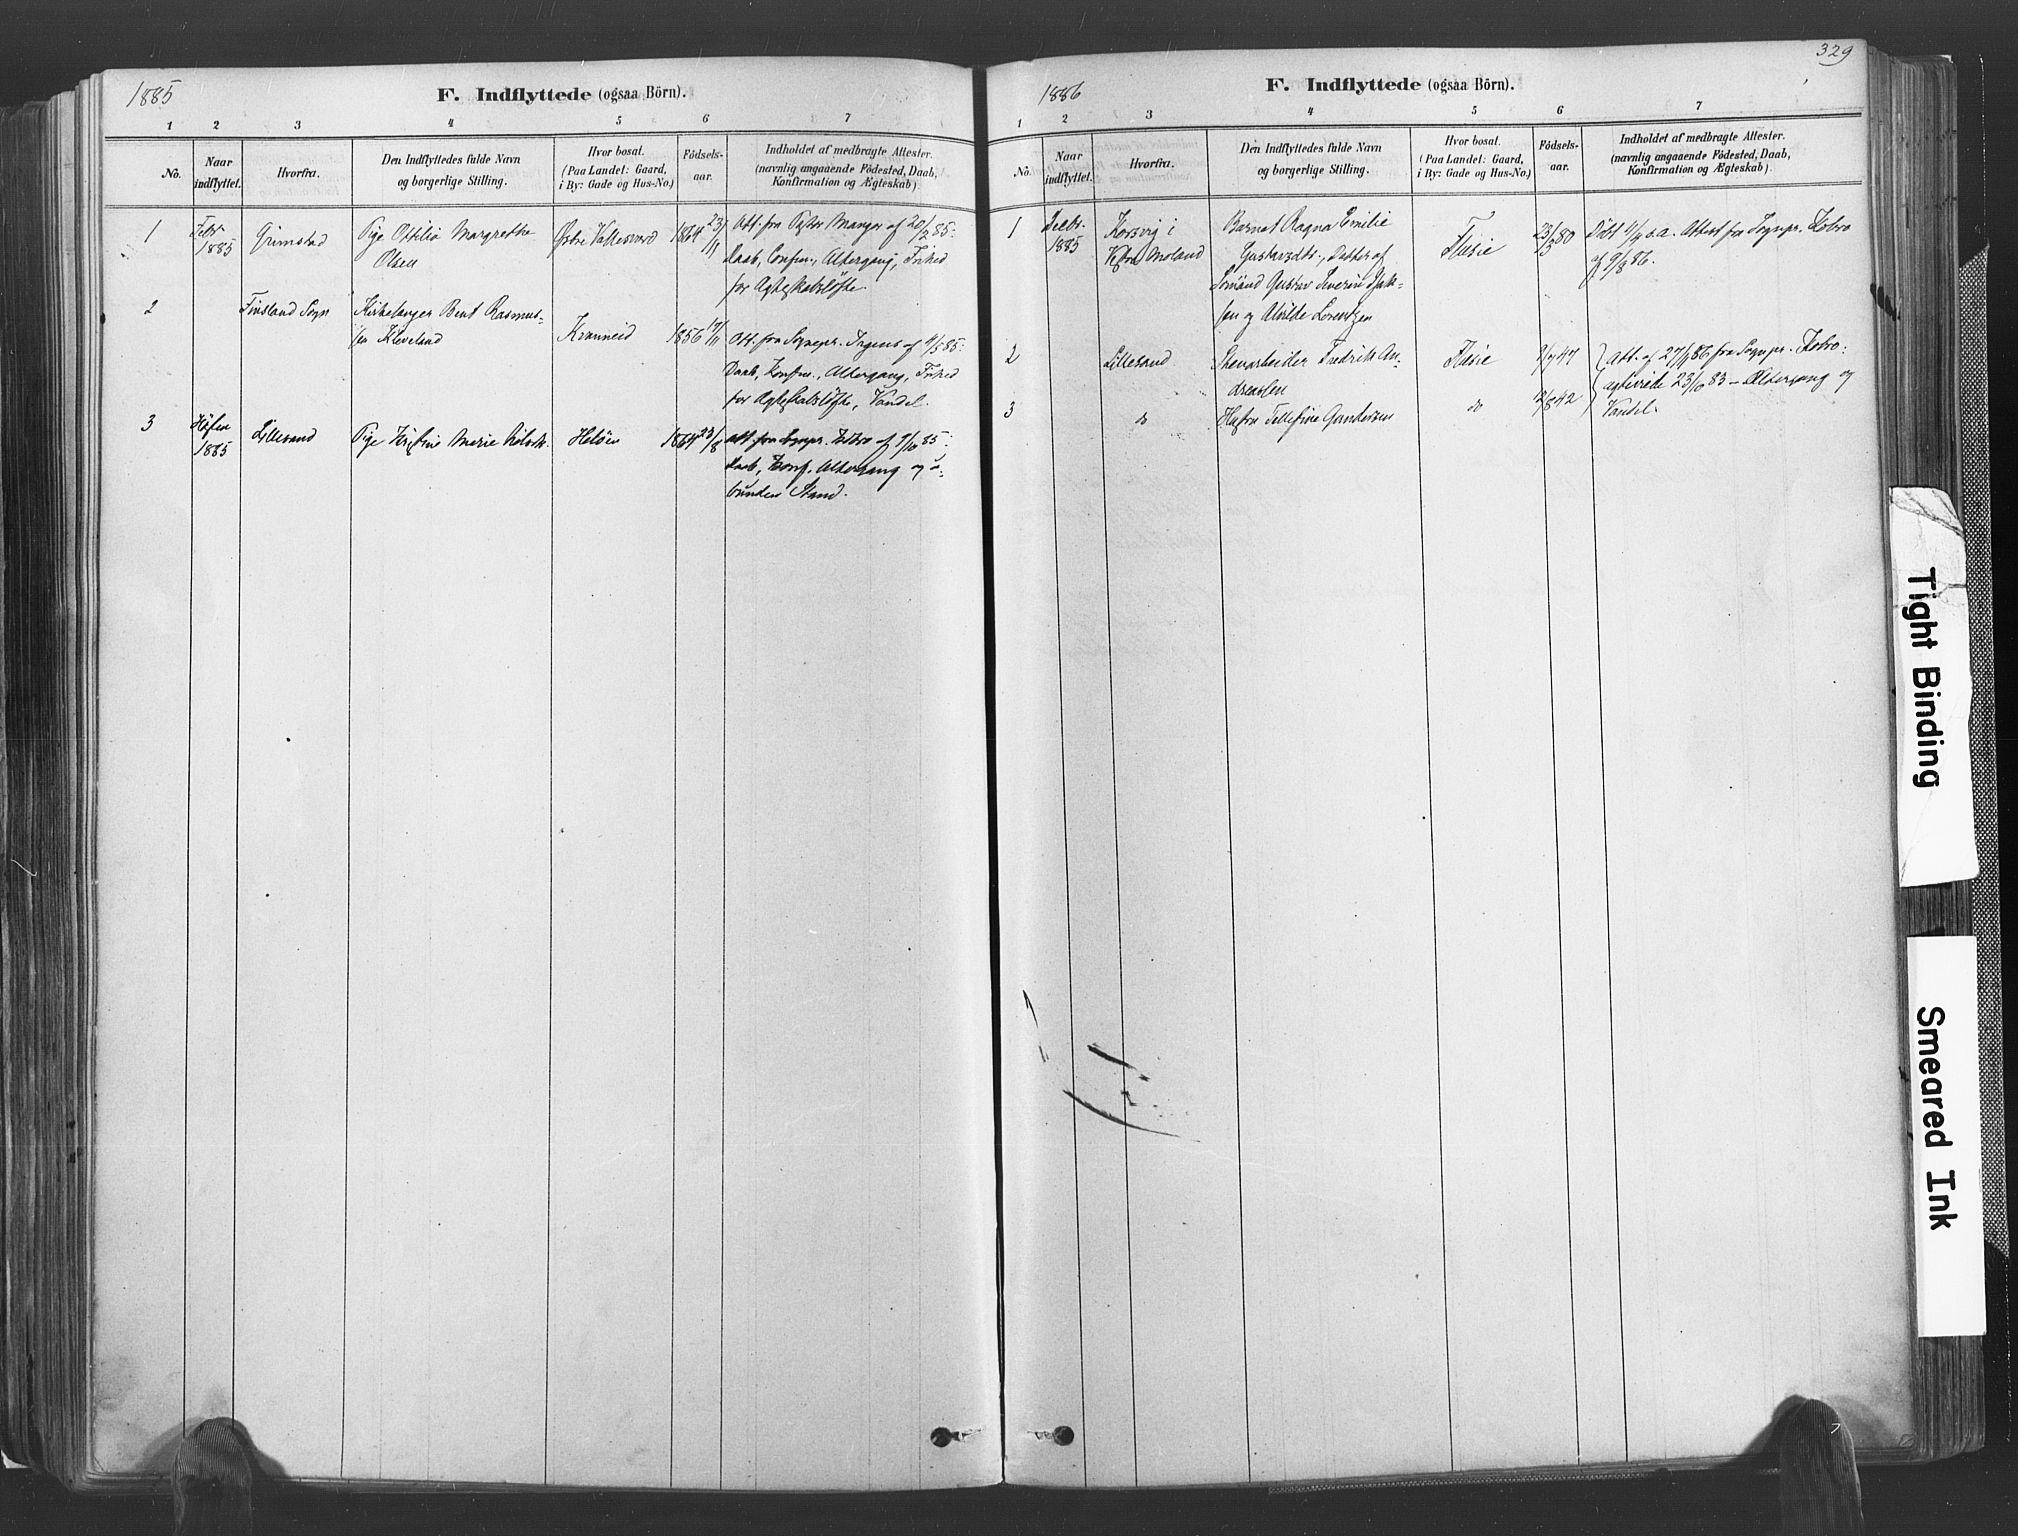 1885
F. Indflyttede (ogsaa Börn).
1 2 3 4 5 6 7
No.
Naar
indflyttet.
Hvorfra.
Den Indflyttedes fulde Navn
og borgerlige Stilling.
Hvor bosat.
(Paa Landet: Gaard,
i By: Gade og Hus-No.)
Fødsels-
aar.
Indholdet af medbragte Attester.
(navnlig angaaende Födested, Daab,
Konfirmation og Ægteskab)
1
Febr
1885
Grimstad
Pige Ottilia Margrethe
Olsen
Østre Vallesværd
1864 23/11
Att. fra Pastor Manger af 20/2 85:
Daab, Confirm., Altergang, Frihed
for Ægteskabsløfte.
2
Finsland Sogn
Kirkesanger Bent Rasmus-
sen Kleveland
1856 17/11
Att. fra Sognepr. 4/5 85:
Daab, Konfirm., Altergang, Frihed
for Ægteskabsløfte, Vandel.
3
Høsten
1885
Lillesand
Pige Kristine Marie
Heløen
1864 23/8
Att. fra Sognepr. Kobro af 9/10 85:
Daab, Konf., Altergang og u-
bunden Stand.
329
1886
F. Indflyttede (ogsaa Börn).
1 2 3 4 5 6 7
No.
Naar
indflyttet.
Hvorfra.
Den Indflyttedes fulde Navn
og borgerlige Stilling.
Hvor bosat.
(Paa Landet: Gaard,
i By: Gade og Hus-No.)
Fødsels-
aar.
Indholdet af medbragte Attester.
(navnlig angaaende Födested, Daab,
Konfirmation og Ægteskab)
1
Decbr.
1885
Korsvig i
Vestre Moland
Barnet Ragna Emilie
Gustavsdtr., Datter af
Sømand Gustav Severin Isak-
sen og Alvilde Lorentzen
23/3 80
Döbt 4/4 s.a. Attest fra Sognpr. Kobro
af 9/3 86.
2
Lillesand
Stenarbeider Fredrik An-
dreassen
47
Att. af 27/ 86 fra Sognpr. Kobro:
ægteviede 23/10 83 – Altergang og
3
do
Hustru Tellefine Gundersen
do
2/8 42
Vandel.
Tight Binding
Smeared Ink